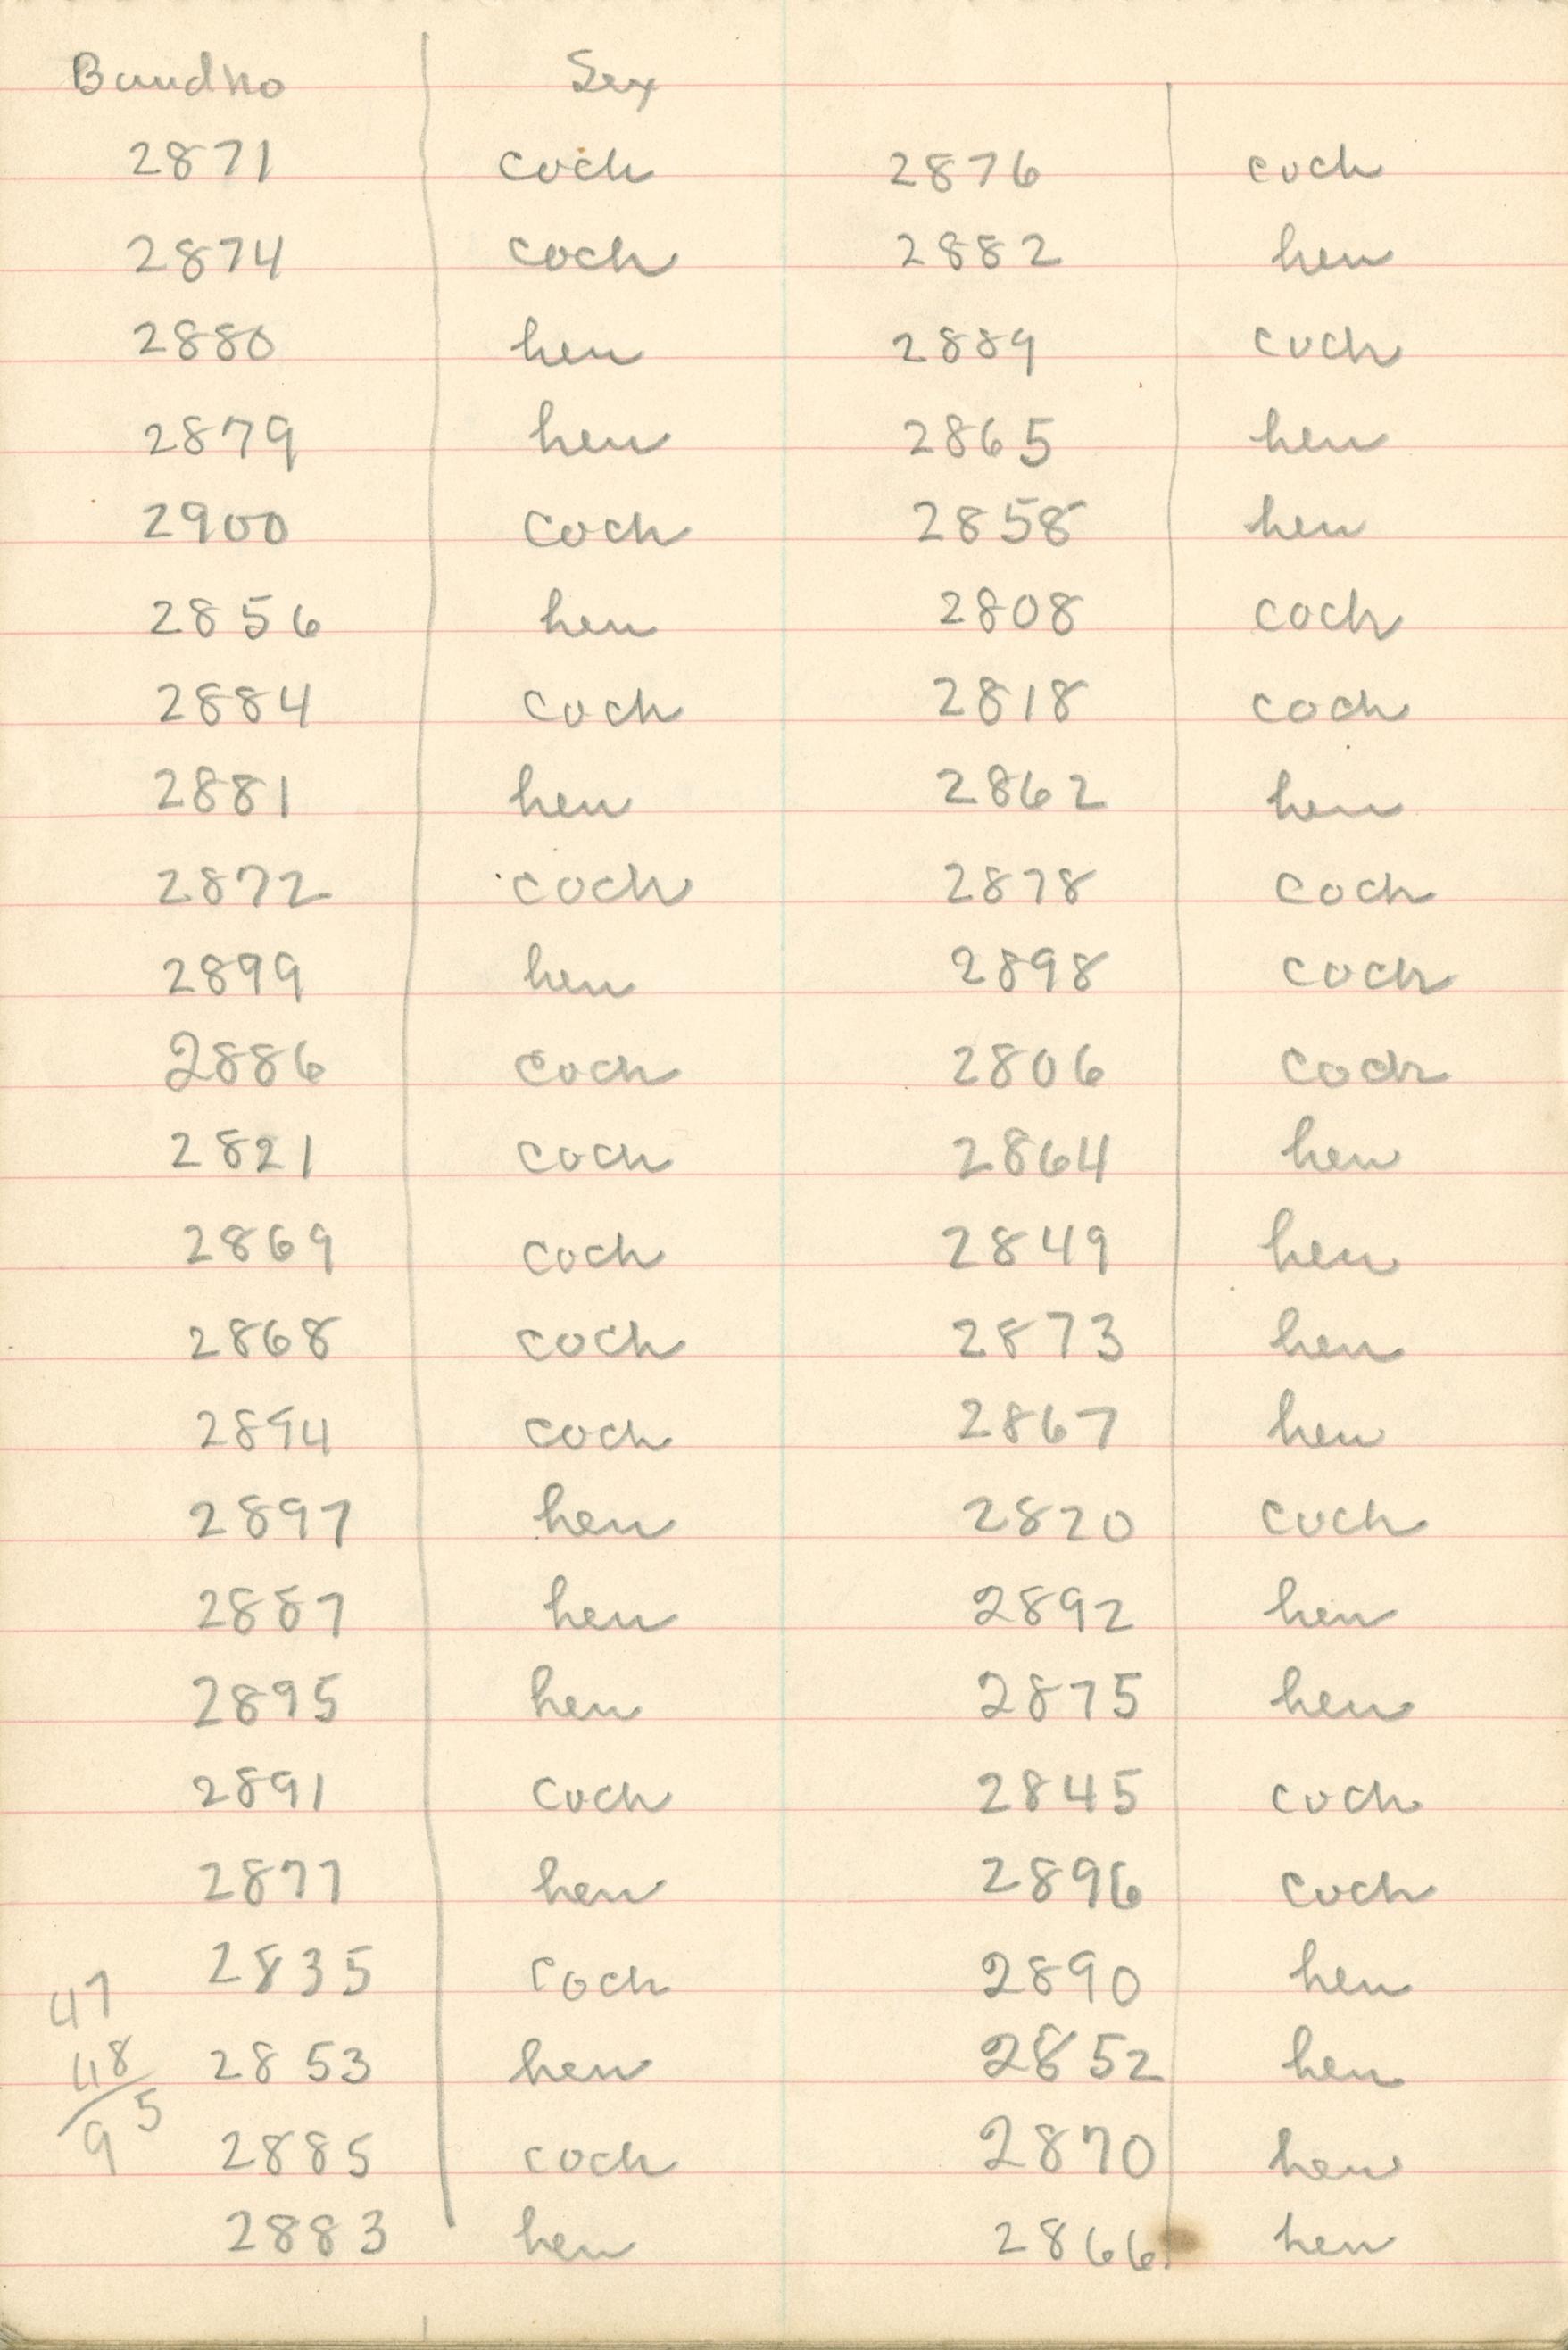 Band No Sex
2871 cock 2876 cock
2874 cock 2882 hen
2880 hen 2889 cock
2879 hen 2865 hen
2900 cock 2858 hen
2856 hen 2808 cock
2884 cock 2818 cock
2881 hen 2862 hen
2872 cock 2878 cock
2899 hen 2898 cock
2886 cock 2806 cock
2821 cock 2864 hen
2869 cock 2849 hen
2868 cock 2873 hen
2894 cock 2867 hen
2897 hen 2820 cock
2887 hen 2892 hen
2895 hen 2875 hen
2891 cock 2845 cock
2877 hen 2896 cock
47 2835 cock 2890 hen
48 2853 hen 2852 hen
95 2885 cock 2870 hen
2883 hen 2866 hen